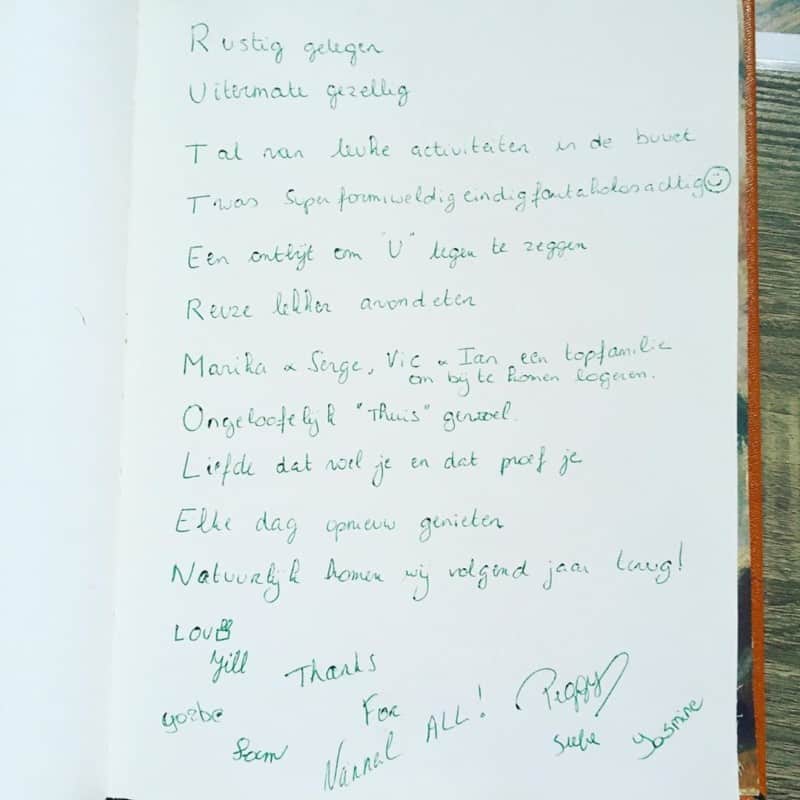 Rustig gelegen
Uitermate gezellig
Tal van leuke activiteiten in de buurt
Twas Superformiweldigeindigfantakolosachtig
Een ontbijt om "U" tegen te zeggen
Reuze lekker avondeten
Marika & Serge, Vic & Ian een topfamilie
om bij te komen logeren.
Ongelooflijk "Thuis" gevoel.
Liefde dat voel je en dat proef je
Elke dag opnieuw genieten
Natuurlijk komen wij volgend jaar terug!
LOU
Jill Thanks
Yorbe For ALL! Peggy
Siebe Yasmine